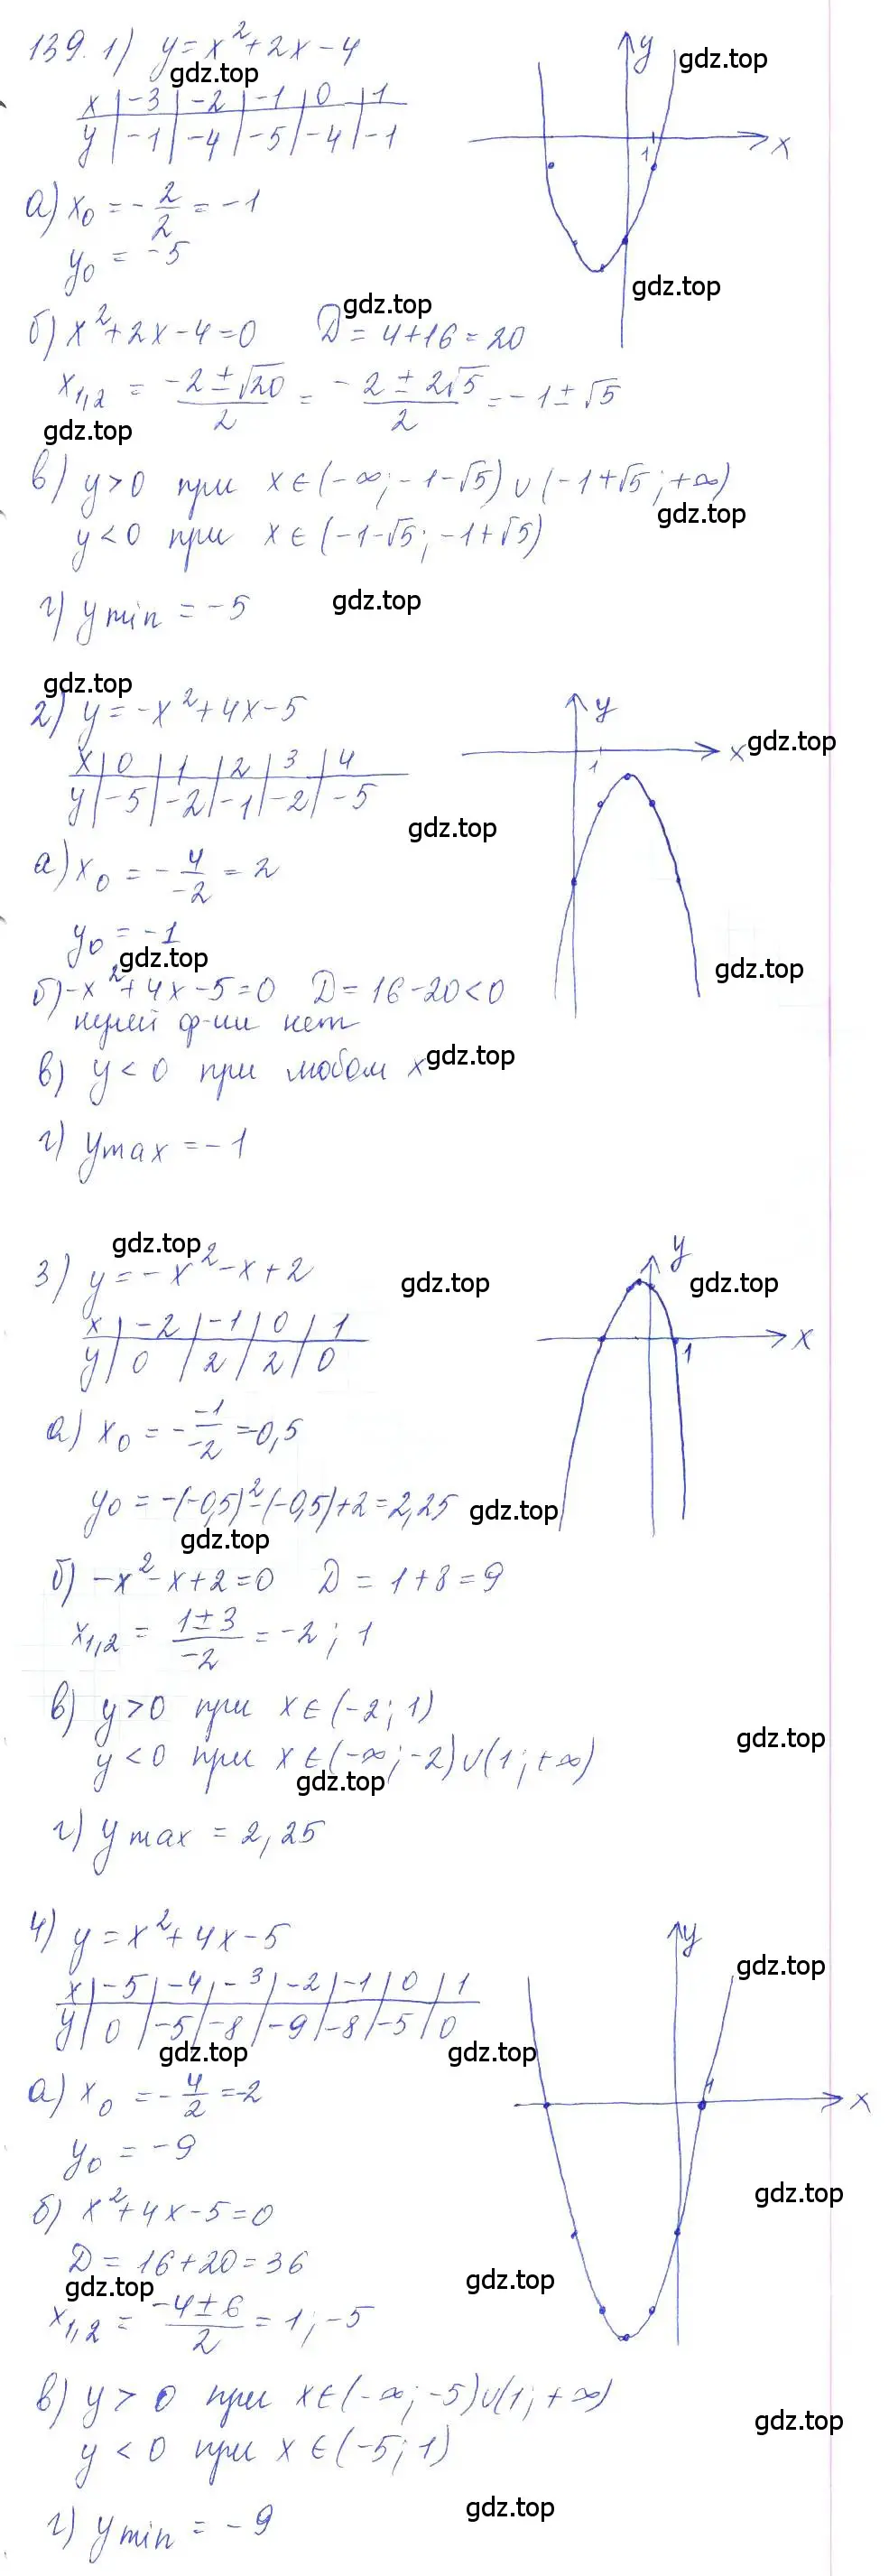 139. 1) y = x² + 2x - 4
gdz.top
y
gdz.top
x | -3 | -2 | -1 | 0 | 1
y | -1 | -4 | -5 | -4 | -1
1
x
а) x₀ = -2/2 = -1
y₀ = -5
gdz.top
gdz.top
б) x² + 2x - 4 = 0 D = 4 + 16 = 20
x₁,₂ = (-2 ± √20)/2 = (-2 ± 2√5)/2 = -1 ± √5
gdz.top
в) y > 0 при x ∈ (-∞; -1-√5) ∪ (-1+√5; +∞)
gdz.top
y < 0 при x ∈ (-1-√5; -1+√5)
г) y min = -5
gdz.top
gdz.top
2) y = -x² + 4x - 5
y
x
gdz.top
x | 0 | 1 | 2 | 3 | 4
1
y | -5 | -2 | -1 | -2 | -5
gdz.top
а) x₀ = -4/-2 = 2
y₀ = -1
gdz.top
gdz.top
б) -x² + 4x - 5 = 0 D = 16 - 20 < 0
нулей ф-ии нет
в) y < 0 при любом x
gdz.top
г) y max = -1
gdz.top
y
3) y = -x² - x + 2
gdz.top
gdz.top
x | -2 | -1 | 0 | 1
y | 0 | 2 | 2 | 0
1
x
а) x₀ = - -1/-2 = -0,5
y₀ = -(-0,5)² - (-0,5) + 2 = 2,25
gdz.top
gdz.top
б) -x² - x + 2 = 0 D = 1 + 8 = 9
x₁,₂ = (1 ± 3)/-2 = -2; 1
в) y > 0 при x ∈ (-2; 1)
gdz.top
y < 0 при x ∈ (-∞; -2) ∪ (1; +∞)
gdz.top
г) y max = 2,25
4) y = x² + 4x - 5
y
gdz.top
x | -5 | -4 | -3 | -2 | -1 | 0 | 1
y | 0 | -5 | -8 | -9 | -8 | -5 | 0
gdz.top
gdz.top
а) x₀ = -4/2 = -2
1
x
y₀ = -9
gdz.top
б) x² + 4x - 5 = 0
D = 16 + 20 = 36
gdz.top
gdz.top
x₁,₂ = (-4 ± 6)/2 = 1; -5
в) y > 0 при x ∈ (-∞; -5) ∪ (1; +∞)
gdz.top
y < 0 при x ∈ (-5; 1)
gdz.top
г) y min = -9